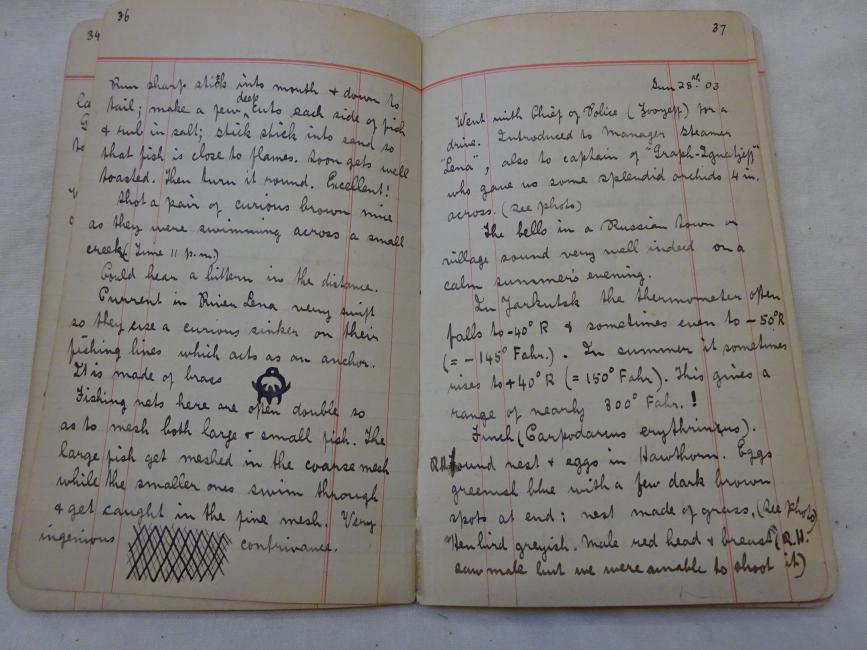 34
la
to
36
Run sharp stick into mouth & down to
tail; make a few deep cuts each side of fish
& rub in salt; stick stick into sand so
that fish is close to flames. Soon gets well
toasted. Then turn it round. Excellent!
Shot a pair of curious brown mice
as they were swimming across a small
creek (Time 11 p.m.)
Could hear a bittern in the distance.
Current in River Lena very swift
so they use a curious sinker on their
fishing lines which acts as an anchor.
It is made of brass
Fishing nets here are often double so
as to mesh both large & small fish. The
large fish get meshed in the coarse mesh
while the smaller ones swim through
& get caught in the fine mesh. Very
ingenious contrivance.
37
28th 03
Went with Chief of Police (Zooyeff) for a
drive. Introduced to Manager Steamer
"Lena", also to captain of "Graph-Ignatjeff"
who gave us some splendid orchids 4 in.
across. (see photo)
The bells in a Russian town or
village sound very well indeed on a
calm summer's evening.
In Jarkutsk the thermometer often
falls to -40° R & sometimes even to -50°R
(= -145° Fahr.). In summer it sometimes
rises to +40° R (= 150° Fahr). This gives a
range of nearly 300° Fahr. !
Finch (Carpodacus erythrinus).
R.H. found nest & eggs in Hawthorn. Eggs
greenish blue with a few dark brown
spots at end; nest made of grass. (see photo)
Hen bird greyish. Male red head & breast (R.H.
saw male but we were unable to shoot it)